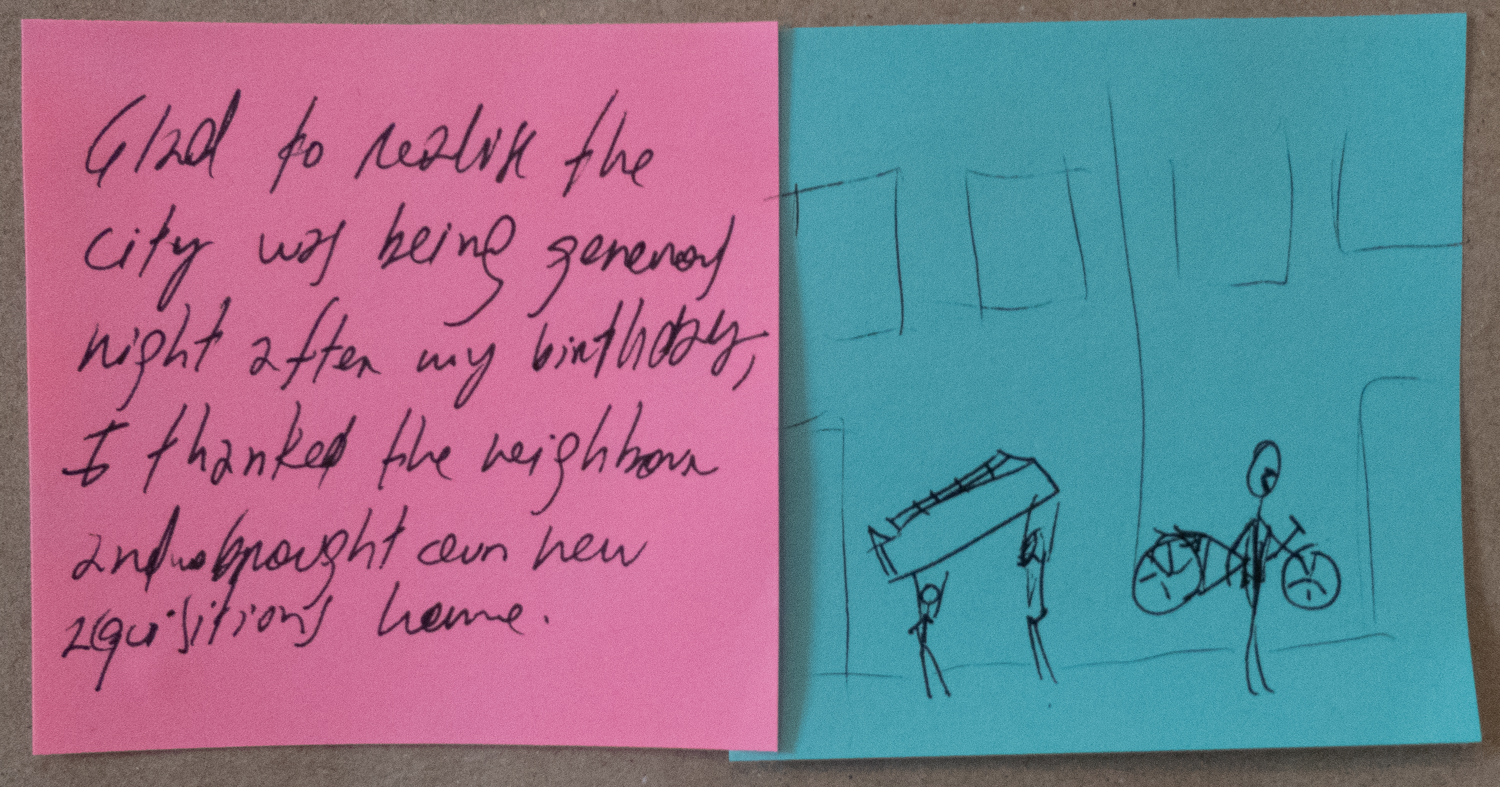 Glad to realise the
city was being generous
night after my birthday,
I thanked the neighbour
and we brought our new
aquisitions home.